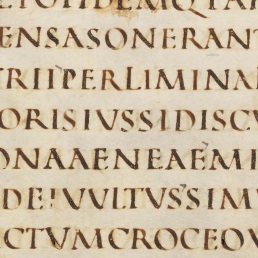 ETOTIDEMQPAR
ENSASONERANT
RIIPERLIMINA
ORISIVSSIDISC
ONAAENEAEMI
DEIVVLTVSSIM
CTVMCROCEOV